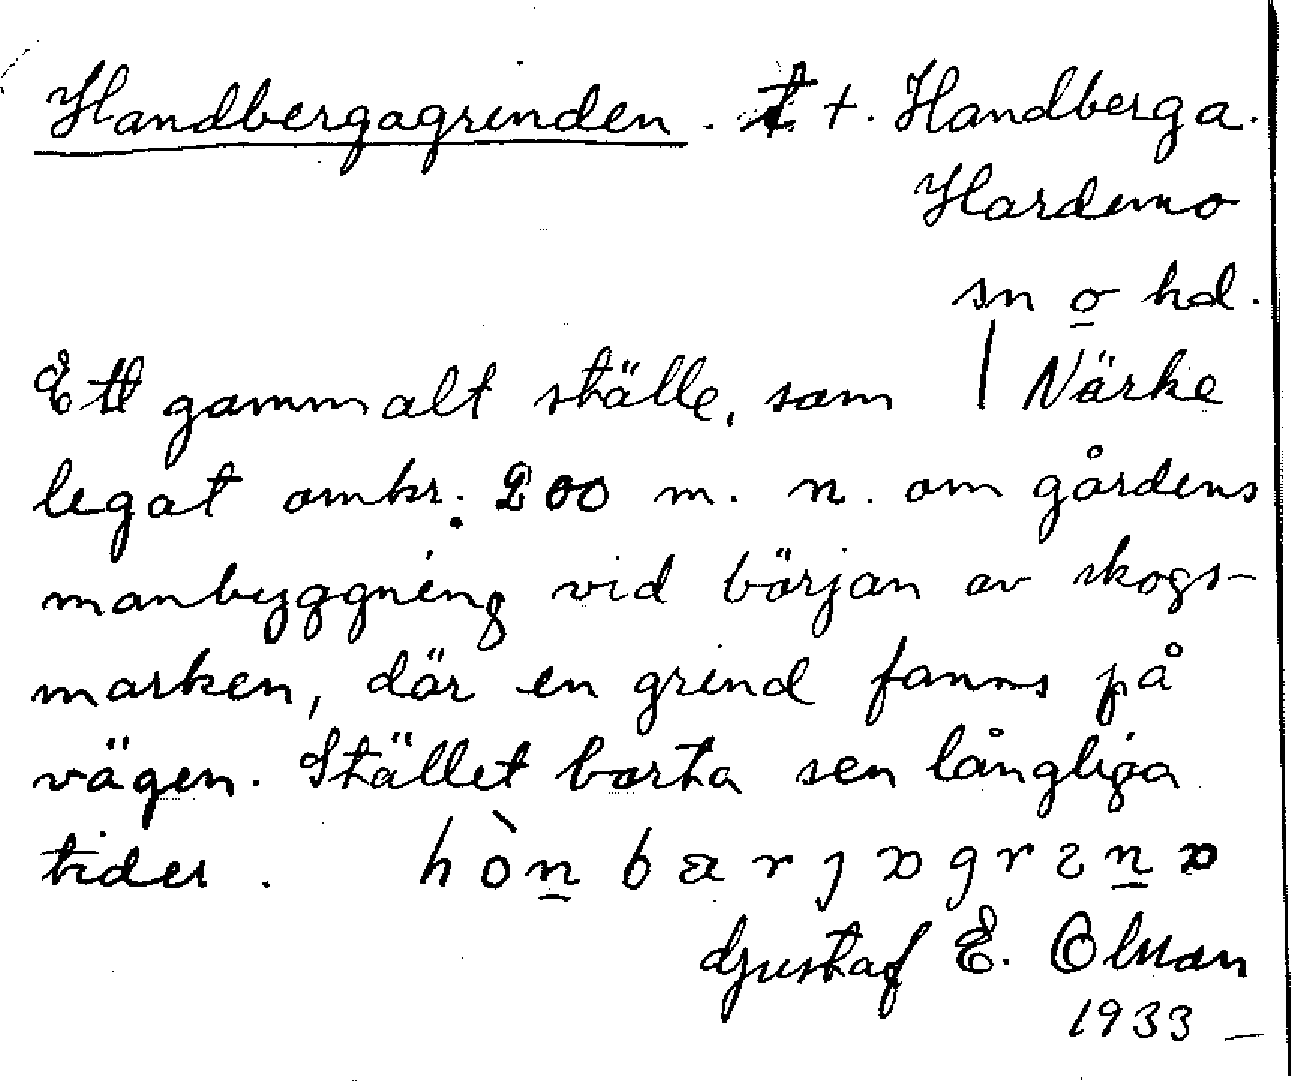 Handbergagrinden. t +. Handberga.
Hardemo
sn o hd.
Ett gammalt ställe, som | Närke
legat omkr. 200 m. n. om gårdens
manbyggning vid början av skogs-
marken, där en grind fanns på
vägen. Stället borta sen långliga
tider.
Gustaf E. Olsson
1933